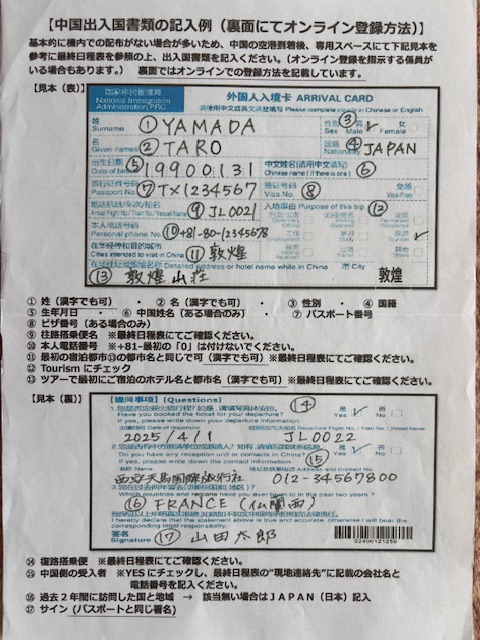 【中国出入国書類の記入例(裏面にてオンライン登録方法)】
基本的に機内での配布がない場合が多いため、中国の空港到着後、専用スペースにて下記見本を
参考に最終日程表を参照の上、出入国書類を記入ください。(オンライン登録を指示する係員が
いる場合もあります。) 裏面ではオンラインでの登録方法を記載しています。
【見本(表)】
国家移民管理局 外国人入境卡 ARRIVAL CARD
National Immigration Administration, PRC
请使用中文或英文填写 Please complete clearly in Chinese or English
姓 Surname ①YAMADA 性别 Sex ③ 男 Male ✓ 女 Female
名 Given names ②TARO 国籍 Nationality ④JAPAN
出生日期 Date of birth ⑤19900131 中文姓名(请用中文填写) Chinese name (If there is one) ⑥
旅行证件号码 Passport No. ⑦TX1234567 签证号码 Visa No. ⑧ 免签
⑨JL0021 入境事由 Purpose of this trip ⑫
本人电话号码 Personal phone No. ⑩+81-80-12345678 ✓
Cities intended to visit in China ⑪敦煌
Detailed address or hotel name while in China 市 City
⑬敦煌山荘 敦煌
① 姓(漢字でも可) ・ ② 名(漢字でも可) ・ ③ 性別 ・ ④ 国籍
⑤ 生年月日 ・ ⑥ 中国姓名(ある場合のみ) ・ ⑦ パスポート番号
⑧ ビザ番号(ある場合のみ)
⑨ 往路搭乗便名 ※最終日程表にてご確認ください。
⑩ 本人電話番号 ※+81-最初の「0」は付けないでください。
⑪ 最初の宿泊都市⑬の都市名と同じで可(漢字でも可)※最終日程表にてご確認ください。
⑫ Tourism にチェック
⑬ ツアーで最初にご宿泊のホテル名と都市名(漢字でも可)※最終日程表にてご確認ください。
【見本(裏)】
【提问事项】[Questions] ⑭
是 Yes ✓ 否 No
Have you booked the ticket for your departure?
If yes, please write down the departure information
2025/4/1 JL0022
Do you have any reception unit or contacts in China? ⑮ Yes ✓ No
If yes, please write down the contact information
西安天馬国際旅行社 012-34567800
Which countries and regions have you ever been to in the past two years?
⑯FRANCE(仏蘭西)
I hereby declare that the statement above is true and accurate, otherwise I will bear the corresponding legal responsibility.
签名 Signature ⑰ 山田太郎
⑭ 復路搭乗便 ※最終日程表にてご確認ください。
⑮ 中国側の受入者 ※YESにチェックし、最終日程表の"現地連絡先"に記載の会社名と
電話番号を記入ください。
⑯ 過去2年間に訪問した国と地域 → 該当無い場合はJAPAN(日本)記入
⑰ サイン(パスポートと同じ署名)